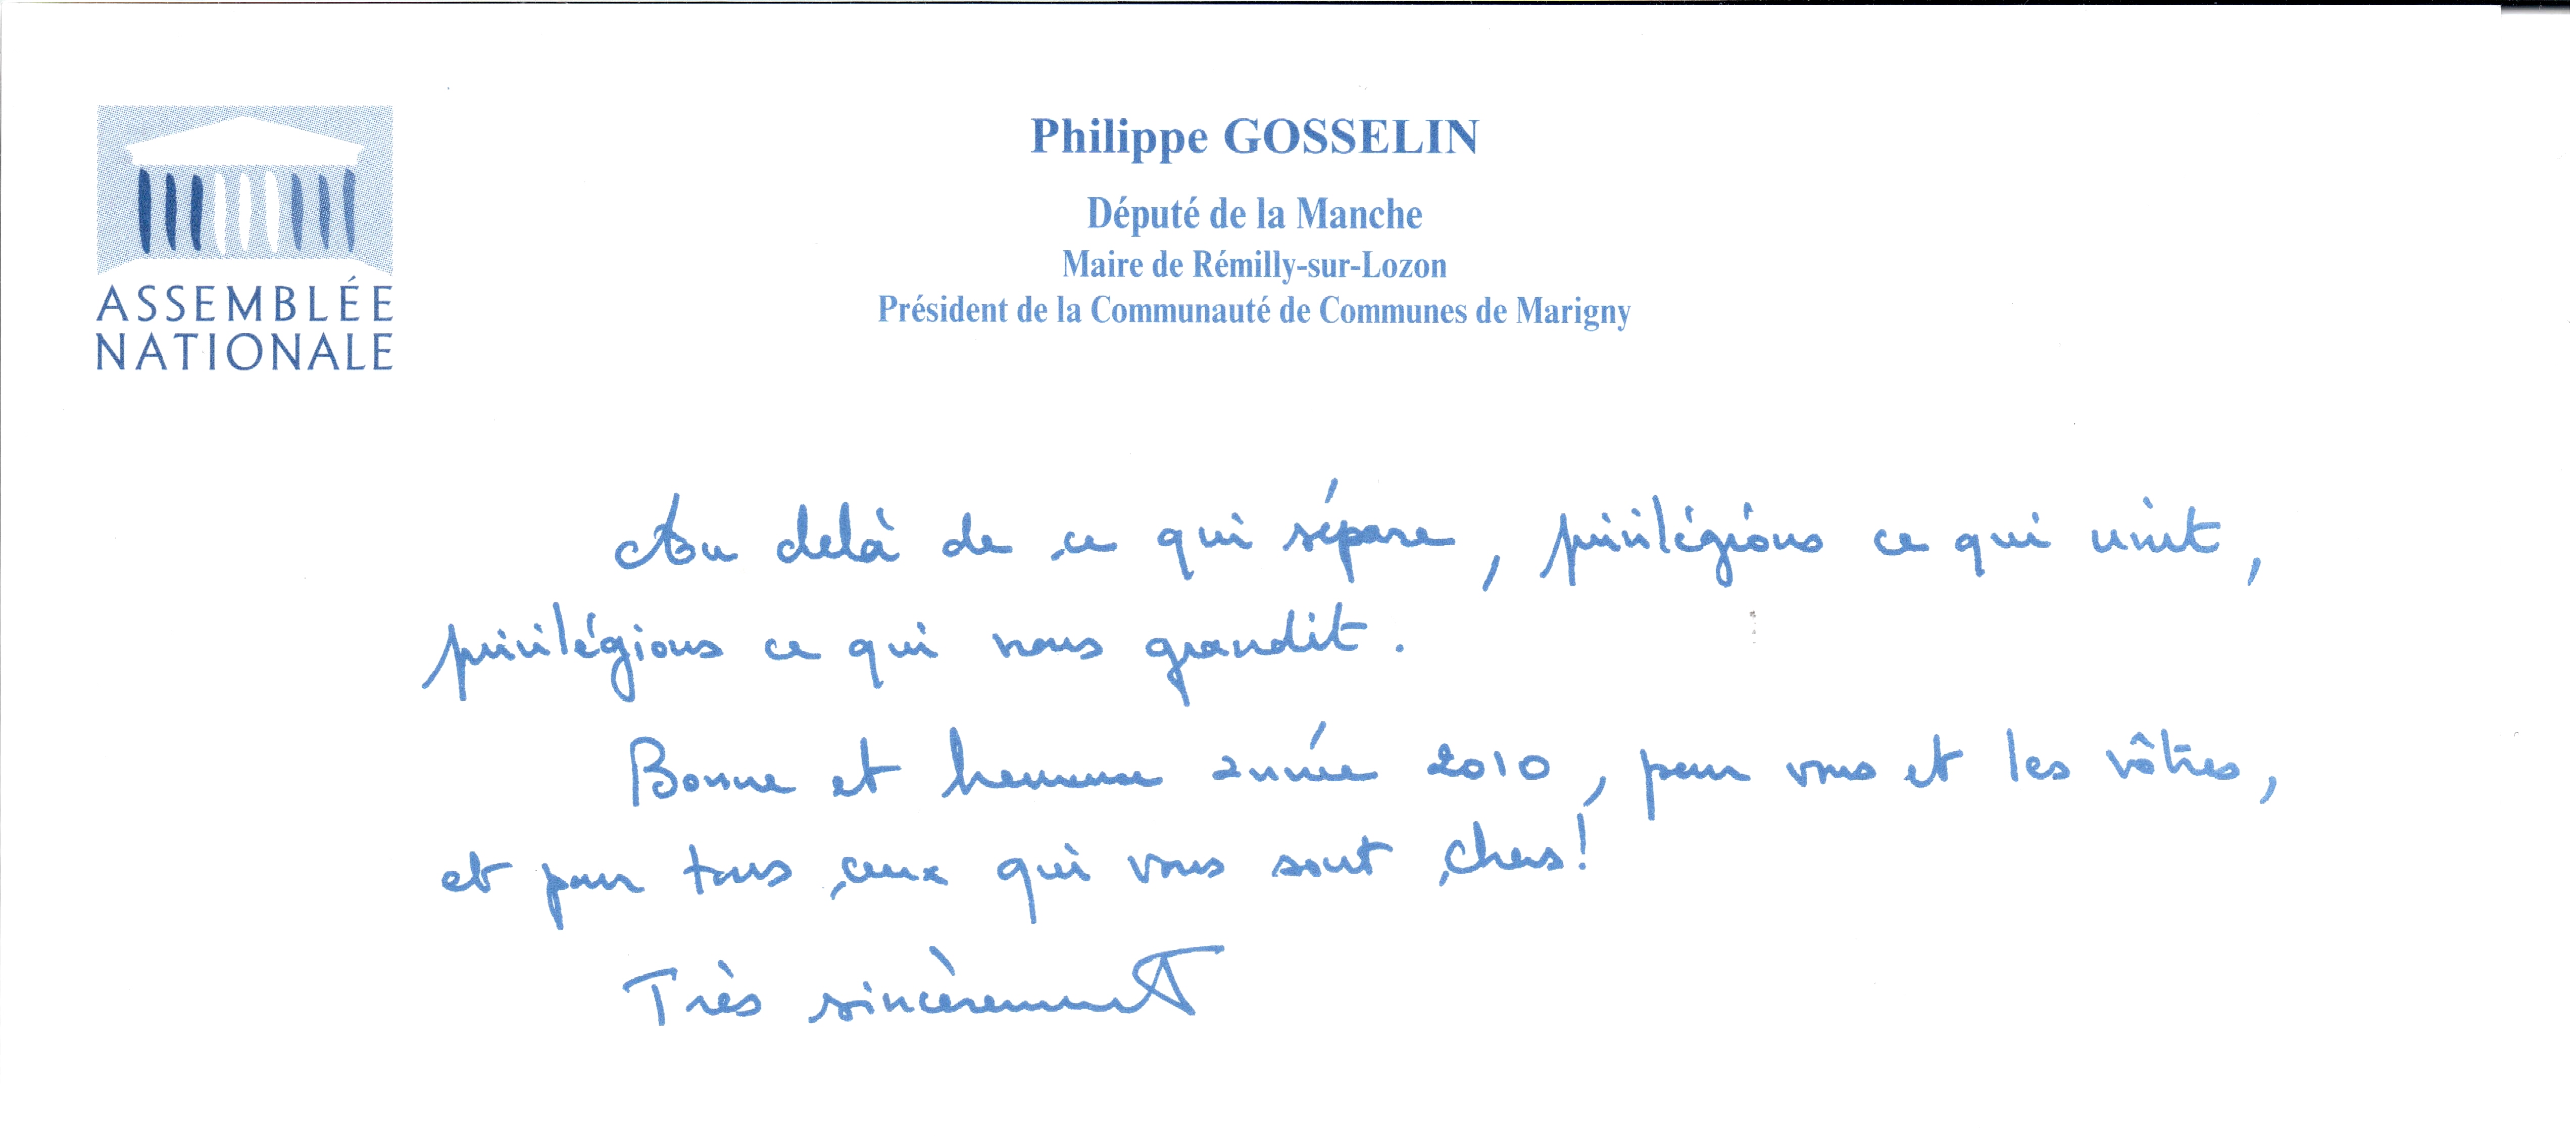 ASSEMBLÉE
NATIONALE
Philippe GOSSELIN
Député de la Manche
Maire de Rémilly-sur-Lozon
Président de la Communauté de Communes de Marigny
Au delà de ce qui sépare, privilégions ce qui unit,
privilégions ce qui nous grandit.
Bonne et heureuse année 2010, pour vous et les vôtres,
et pour tous ceux qui vous sont chers!
Très sincèrement